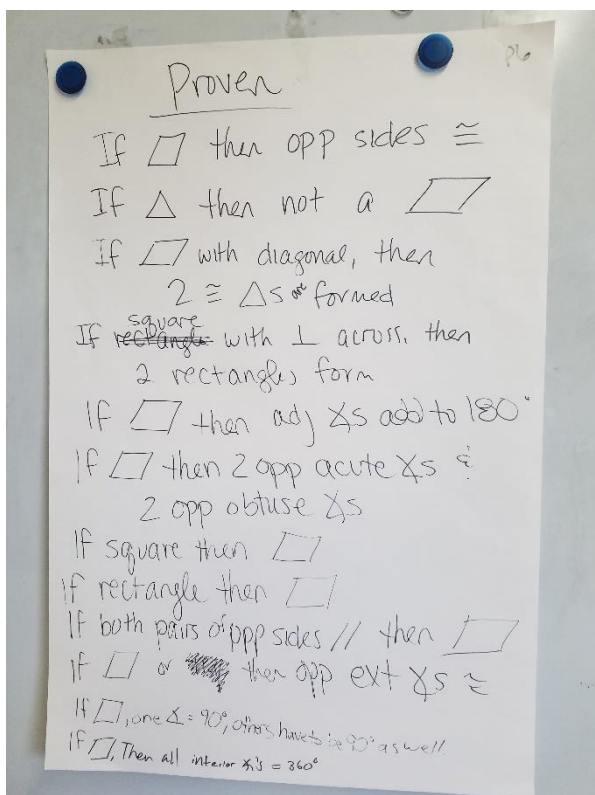 P6
Proven
If ▱ then opp sides ≅
If △ then not a ▱
If ▱ with diagonal, then
2 ≅ △s are formed
If square with ⊥ across, then
2 rectangles form
If ▱ then adj ∡s add to 180°
If ▱ then 2 opp acute ∡s &
2 opp obtuse ∡s
If square then ▱
If rectangle then ▱
If both pairs of opp sides // then ▱
If ▱ or then opp ext ∡s ≅
If ▱, one ∡ = 90°, others have to be 90° as well.
If ▱, Then all interior ∡'s = 360°